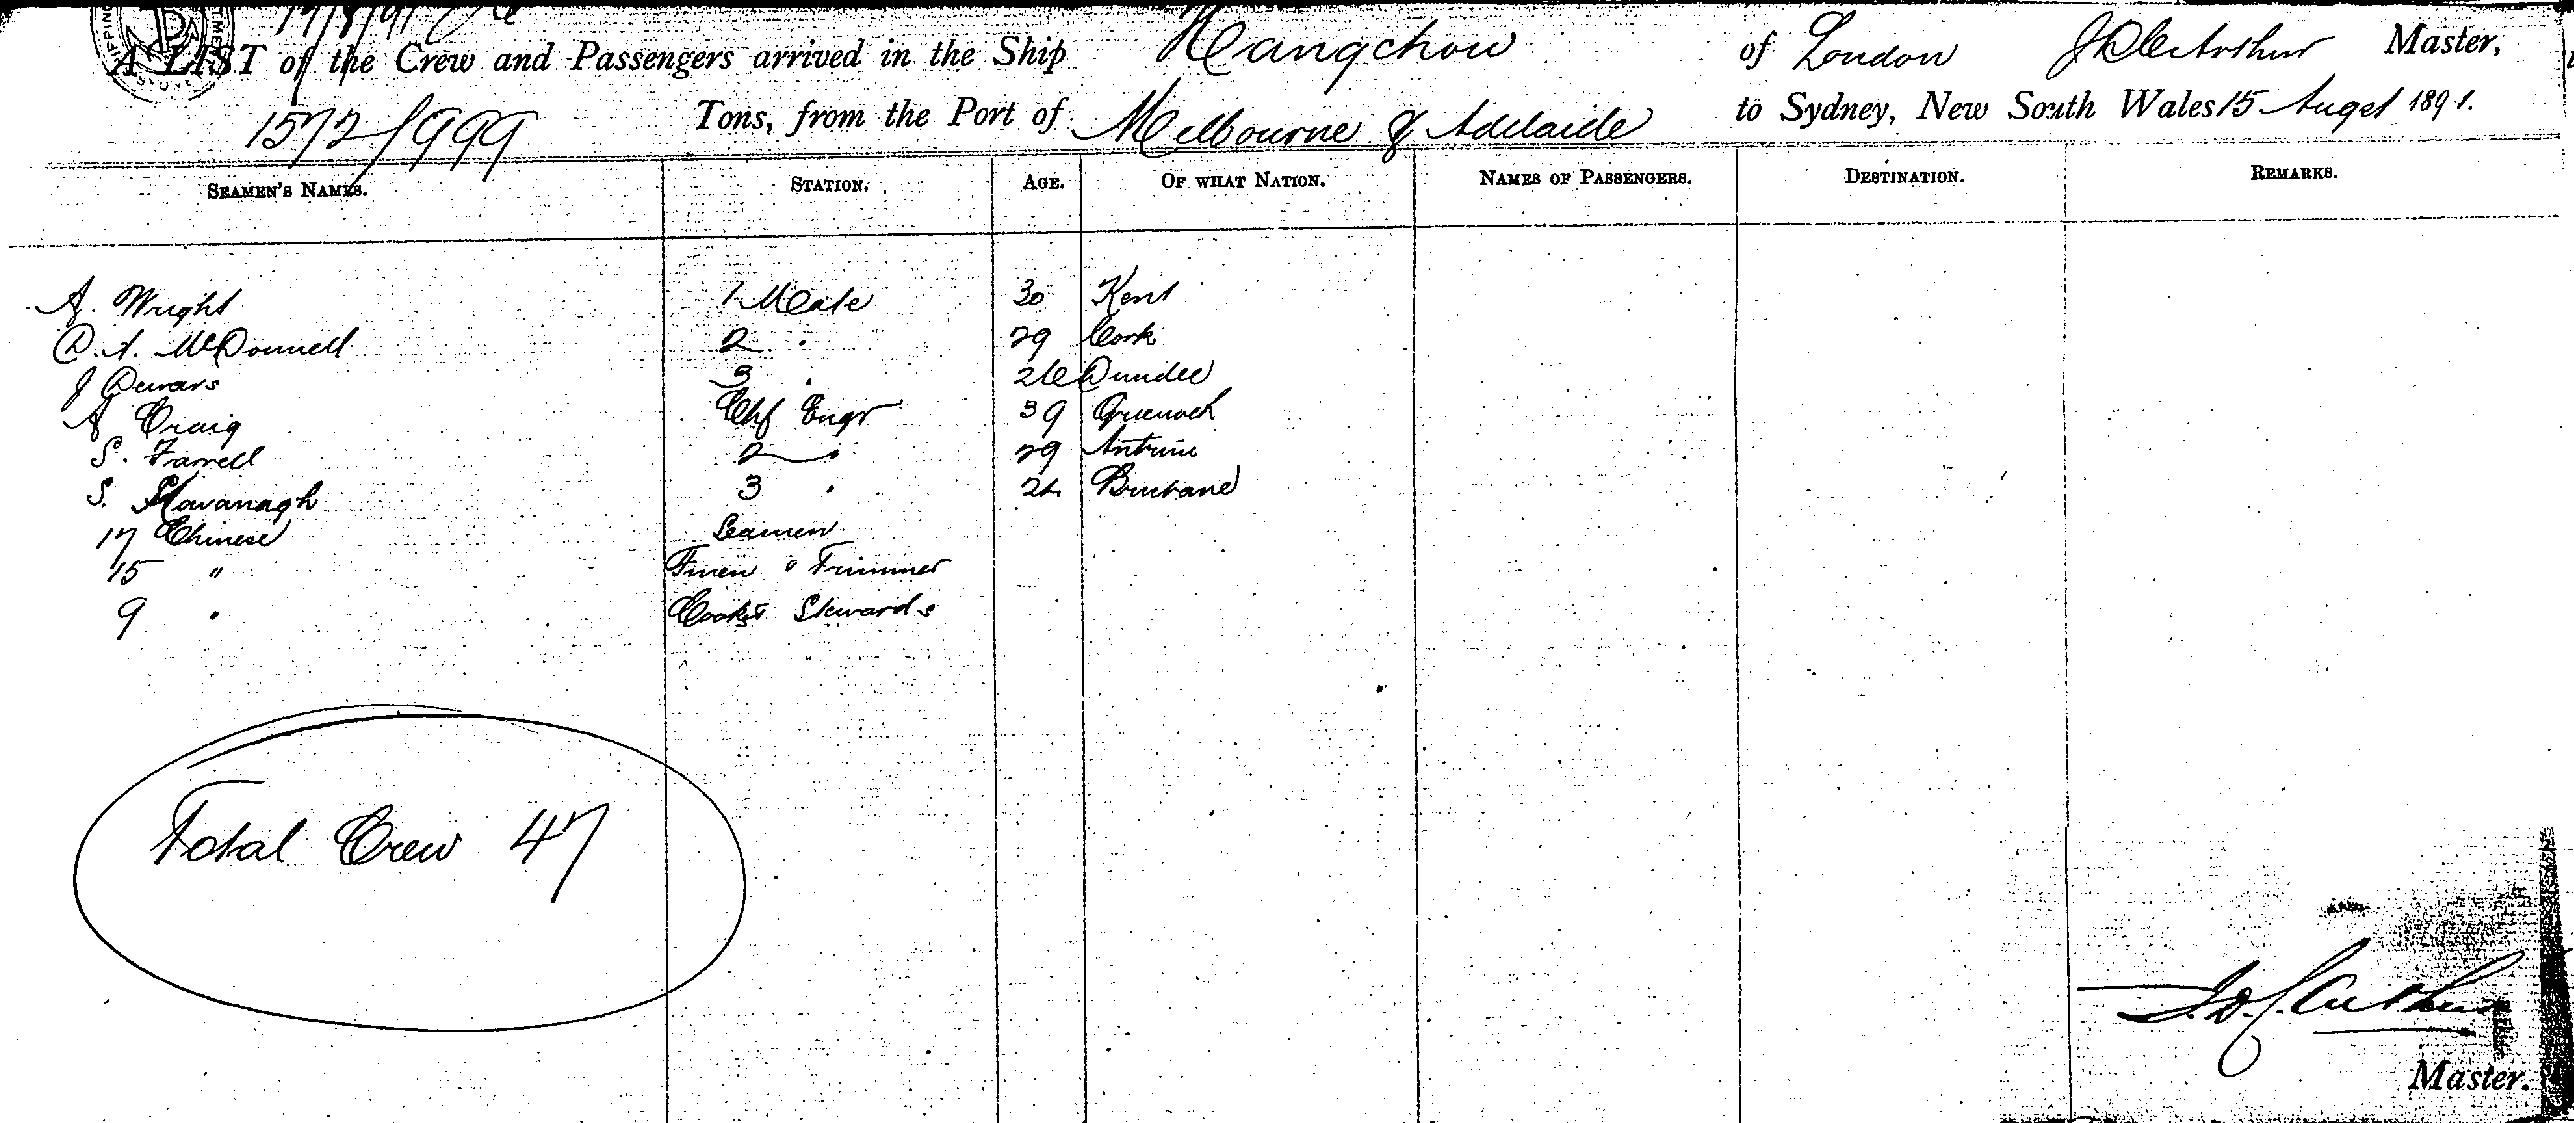 17/8/91
A LIST of the Crew and Passengers arrived in the Ship Hangchow of London J D C Arthur Master,
1572/999 Tons, from the Port of Melbourne & Adelaide to Sydney, New South Wales 15 Augst 1891.
SEAMEN'S NAMES. STATION. AGE. OF WHAT NATION. NAMES OF PASSENGERS. DESTINATION. REMARKS.
A. Wright 1 Mate 30 Kent
D. A. McDonnell 2 " 29 Cork
J Dewars 3 " 26 Dundee
A Craig Chf Engr 39 Greenock
S. Farrell 2 " 29 Antrim
S. Kavanagh 3 " 24 Brisbane
17 Chinese Seamen
15 " Firemen & Trimmer
9 " Cooks & Stewards
Total Crew 47
J. D. C. Arthur
Master.